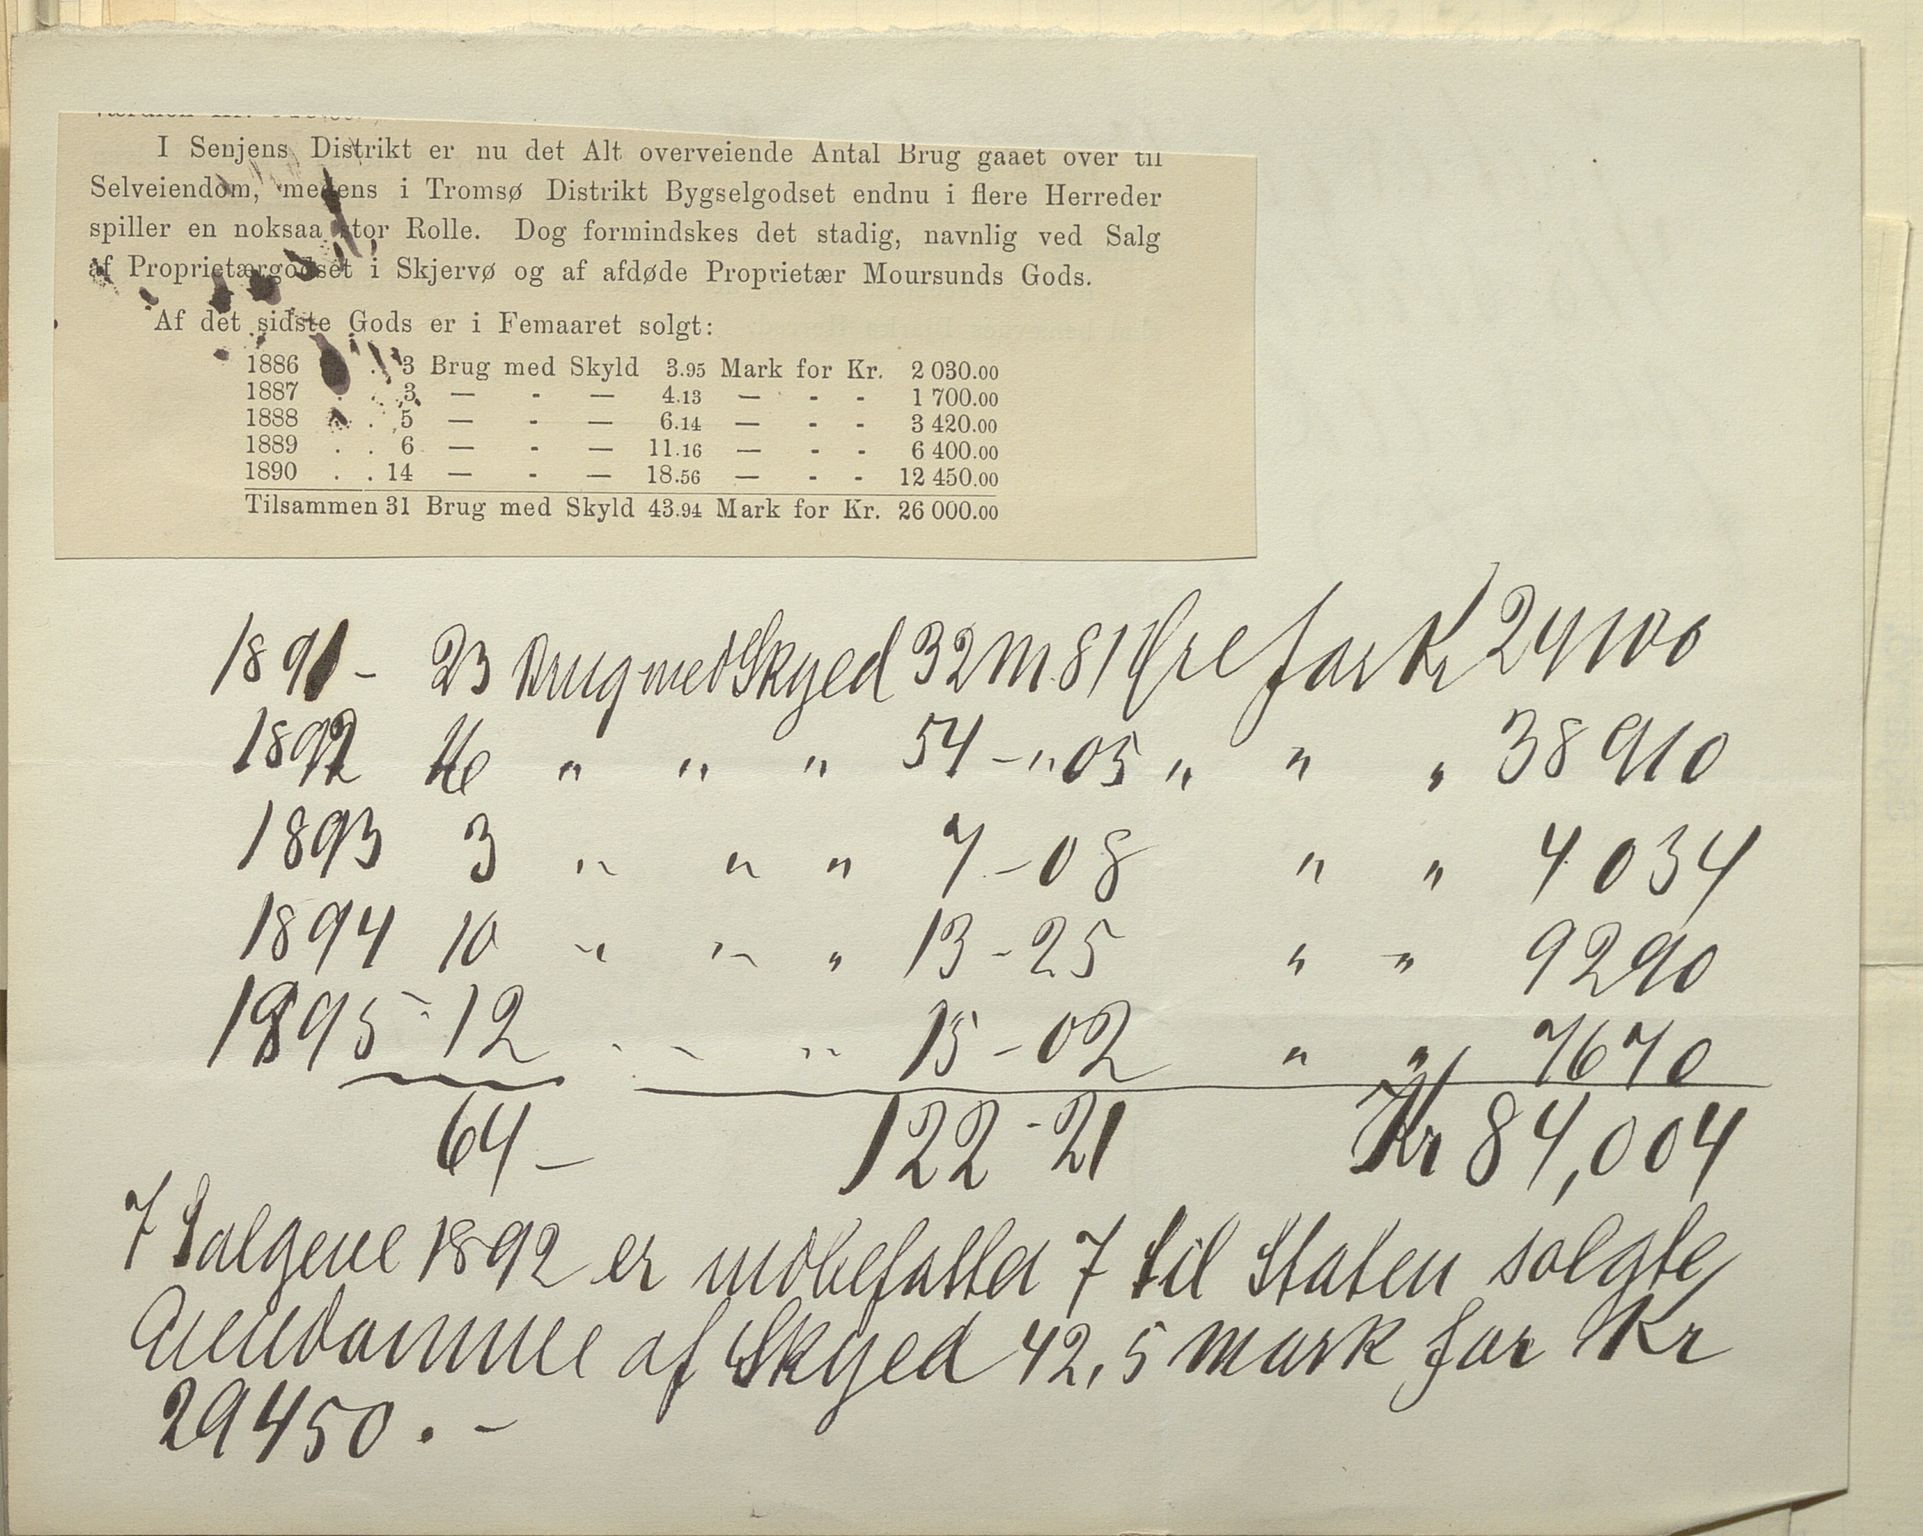 I Senjens Distrikt er nu det Alt overveiende Antal Brug gaaet over til
Selveiendom, medens i Tromsø Distrikt Bygselgodset endnu i flere Herreder
spiller en noksaa stor Rolle. Dog formindskes det stadig, navnlig ved Salg
af Proprietærgodset i Skjervø og af afdøde Proprietær Moursunds Gods.
Af det sidste Gods er i Femaaret solgt:
1886 . . 3 Brug med Skyld 3.95 Mark for Kr. 2 030.00
1887 . . 3 — - — 4.13 — - - 1 700.00
1888 . . 5 — - — 6.14 — - - 3 420.00
1889 . . 6 — - — 11.16 — - - 6 400.00
1890 . . 14 — - — 18.56 — - - 12 450.00
Tilsammen 31 Brug med Skyld 43.94 Mark for Kr. 26 000.00
1891 - 23 Brug med Skyld 32 M 81 Øre for Kr 24100
1892 16 " " " 54 - " 05 " " " 38910
1893 3 " " " 7 - 08 " " 4034
1894 10 " " " 13 - 25 " " 9290
1895 - 12 " " " 15 - 02 " " 7670
64 - 122 - 21 Kr 84,004
I Salgene 1892 er indbefattet 7 til Staten solgte
Eiendomme af Skyld 42,5 mark for Kr
29450. -